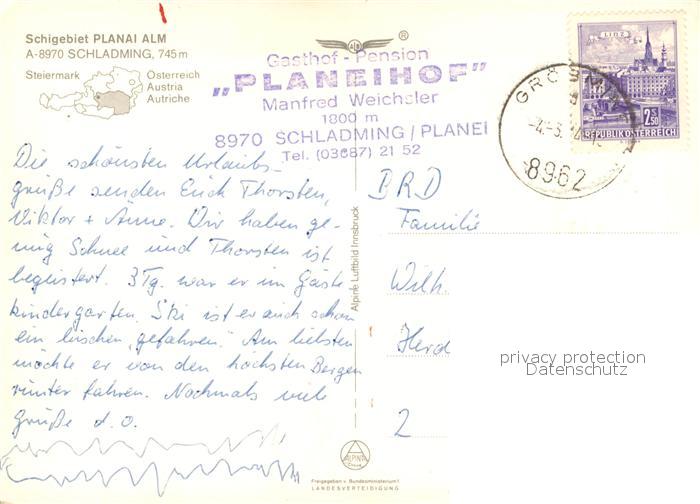 Schigebiet PLANAI ALM
A-8970 SCHLADMING, 745 m
Steiermark
Österreich
Austria
Autriche
Gasthof - Pension
„PLANEIHOF"
Manfred Weichsler
1800 m
8970 SCHLADMING / PLANEI
Tel. (03687) 21 52
LINZ
2.50
REPUBLIK ÖSTERREICH
8962
Die schönsten Urlaubs-
grüße senden Euch Thorsten,
Viktor + Änne. Wir haben ge-
nug Schnee und Thorsten ist
begeistert. 3 Tg. war er im Gäste
kindergarten. Ski ist er auch schon
ein bischen „gefahren". Am liebsten
möchte er von den höchsten Bergen
runter fahren. Nochmals viele
Grüße d. O.
Alpine Luftbild Innsbruck
BRD
Familie
Wilh.
Herd
2
privacy protection
Datenschutz
ALPINE
Freigegeben v. Bundesministerium f.
LANDESVERTEIDIGUNG